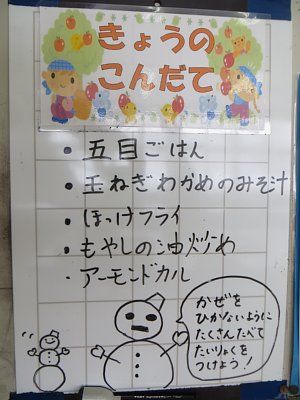 きょうの
こんだて
・五目ごはん
・玉ねぎわかめのみそ汁
・ほっけフライ
・もやしの油炒め
・アーモンドカル
かぜを
ひかないように
たくさんたべて
たいりょくを
つけよう!